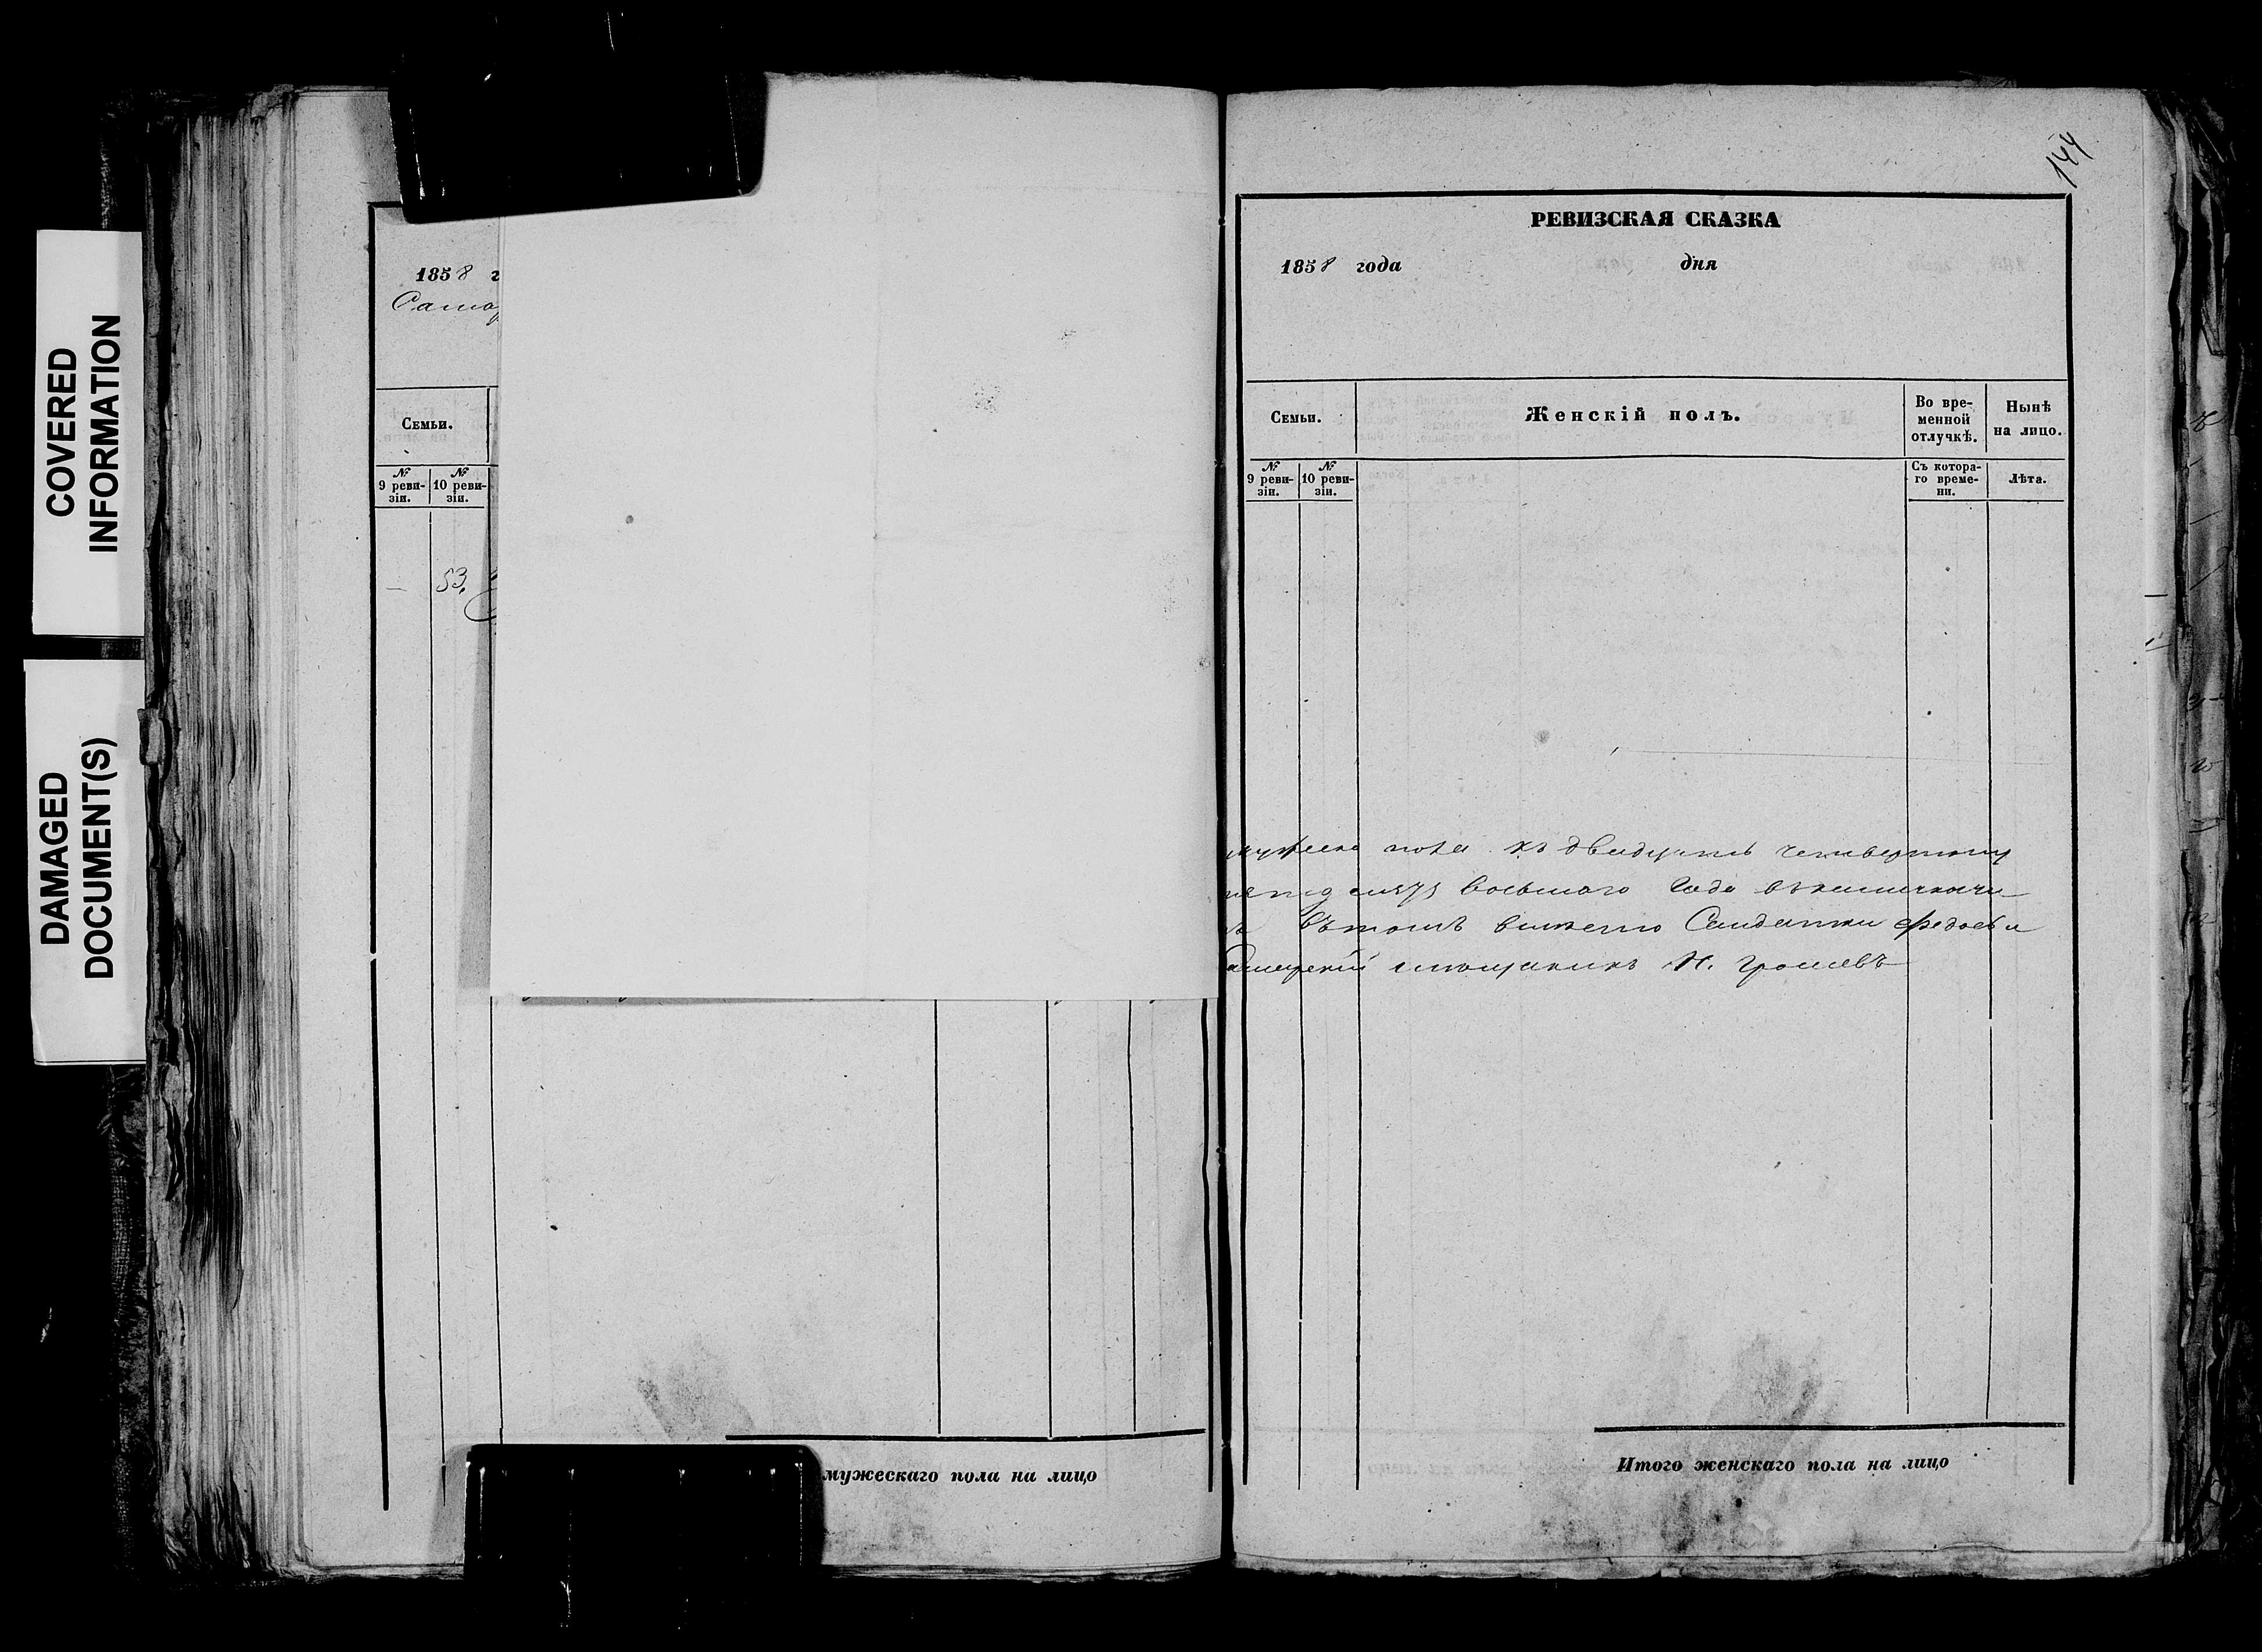 COVERED
INFORMATION
DAMAGED
DOCUMENT(S)
1858
Семьи.
№ 9 реви-зіи.
№ 10 реви-зіи.
53.
мужескаго пола на лицо
144
РЕВИЗСКАЯ СКАЗКА
1858 года дня
Семьи.
Женскій полъ.
Во вре-менной отлучкѣ.
Нынѣ на лицо.
№ 9 реви-зіи.
№ 10 реви-зіи.
Съ котора-го време-ни.
Лѣта.
пола къ двадцать четвертому
восьмаго года
вътомъ вместо Солдатки Федосьи
Н. Громовъ
Итого женскаго пола на лицо